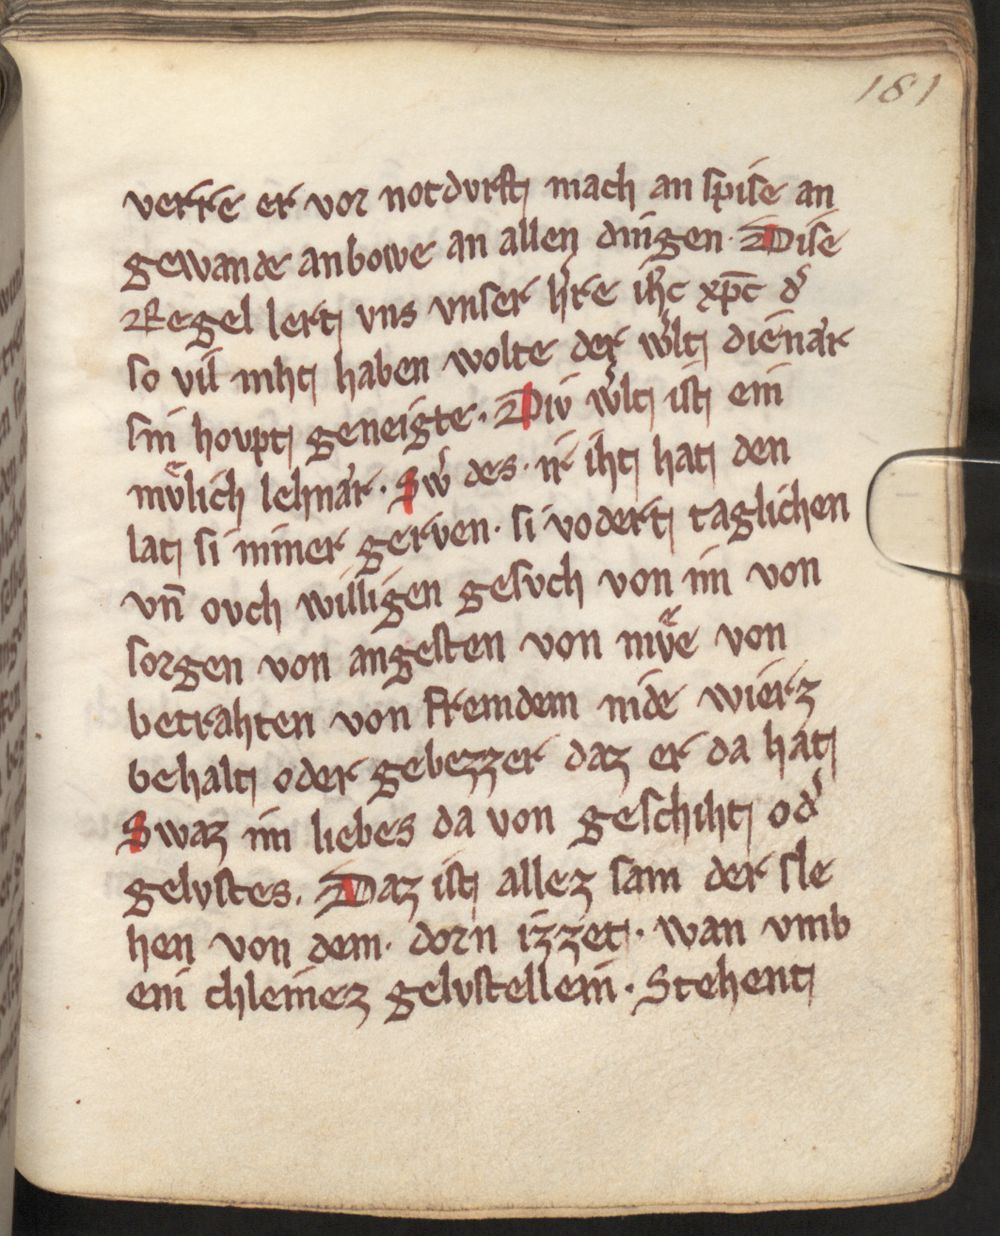 181
verre er vor notdvrft mach an spise an
gewande an bowe an allen dingen. Dise
Regel lert vns vnser h̓re ih̓c xp̄c d̓
so vil niht haben wolte der w̓lt dienar
sin hovpt geneigte. Div w̓lt ist ein
mvͤlich lehnar. Sw̓ des ir iht hat den
lat si nimer gerven. si vodert taglichen
vn̄ ovch willigen gesvch von im von
sorgen von angesten von mvͤe von
betrahten von fremdem nide wierz
behalt oder gebezzer daz er da hat
Swaz im liebes da von geschiht od̓
gelvstes. Daz ist allez sam der sle
hen von dem dorn izzet. wan vmb
ein chleinez gelvstellein. Stehent